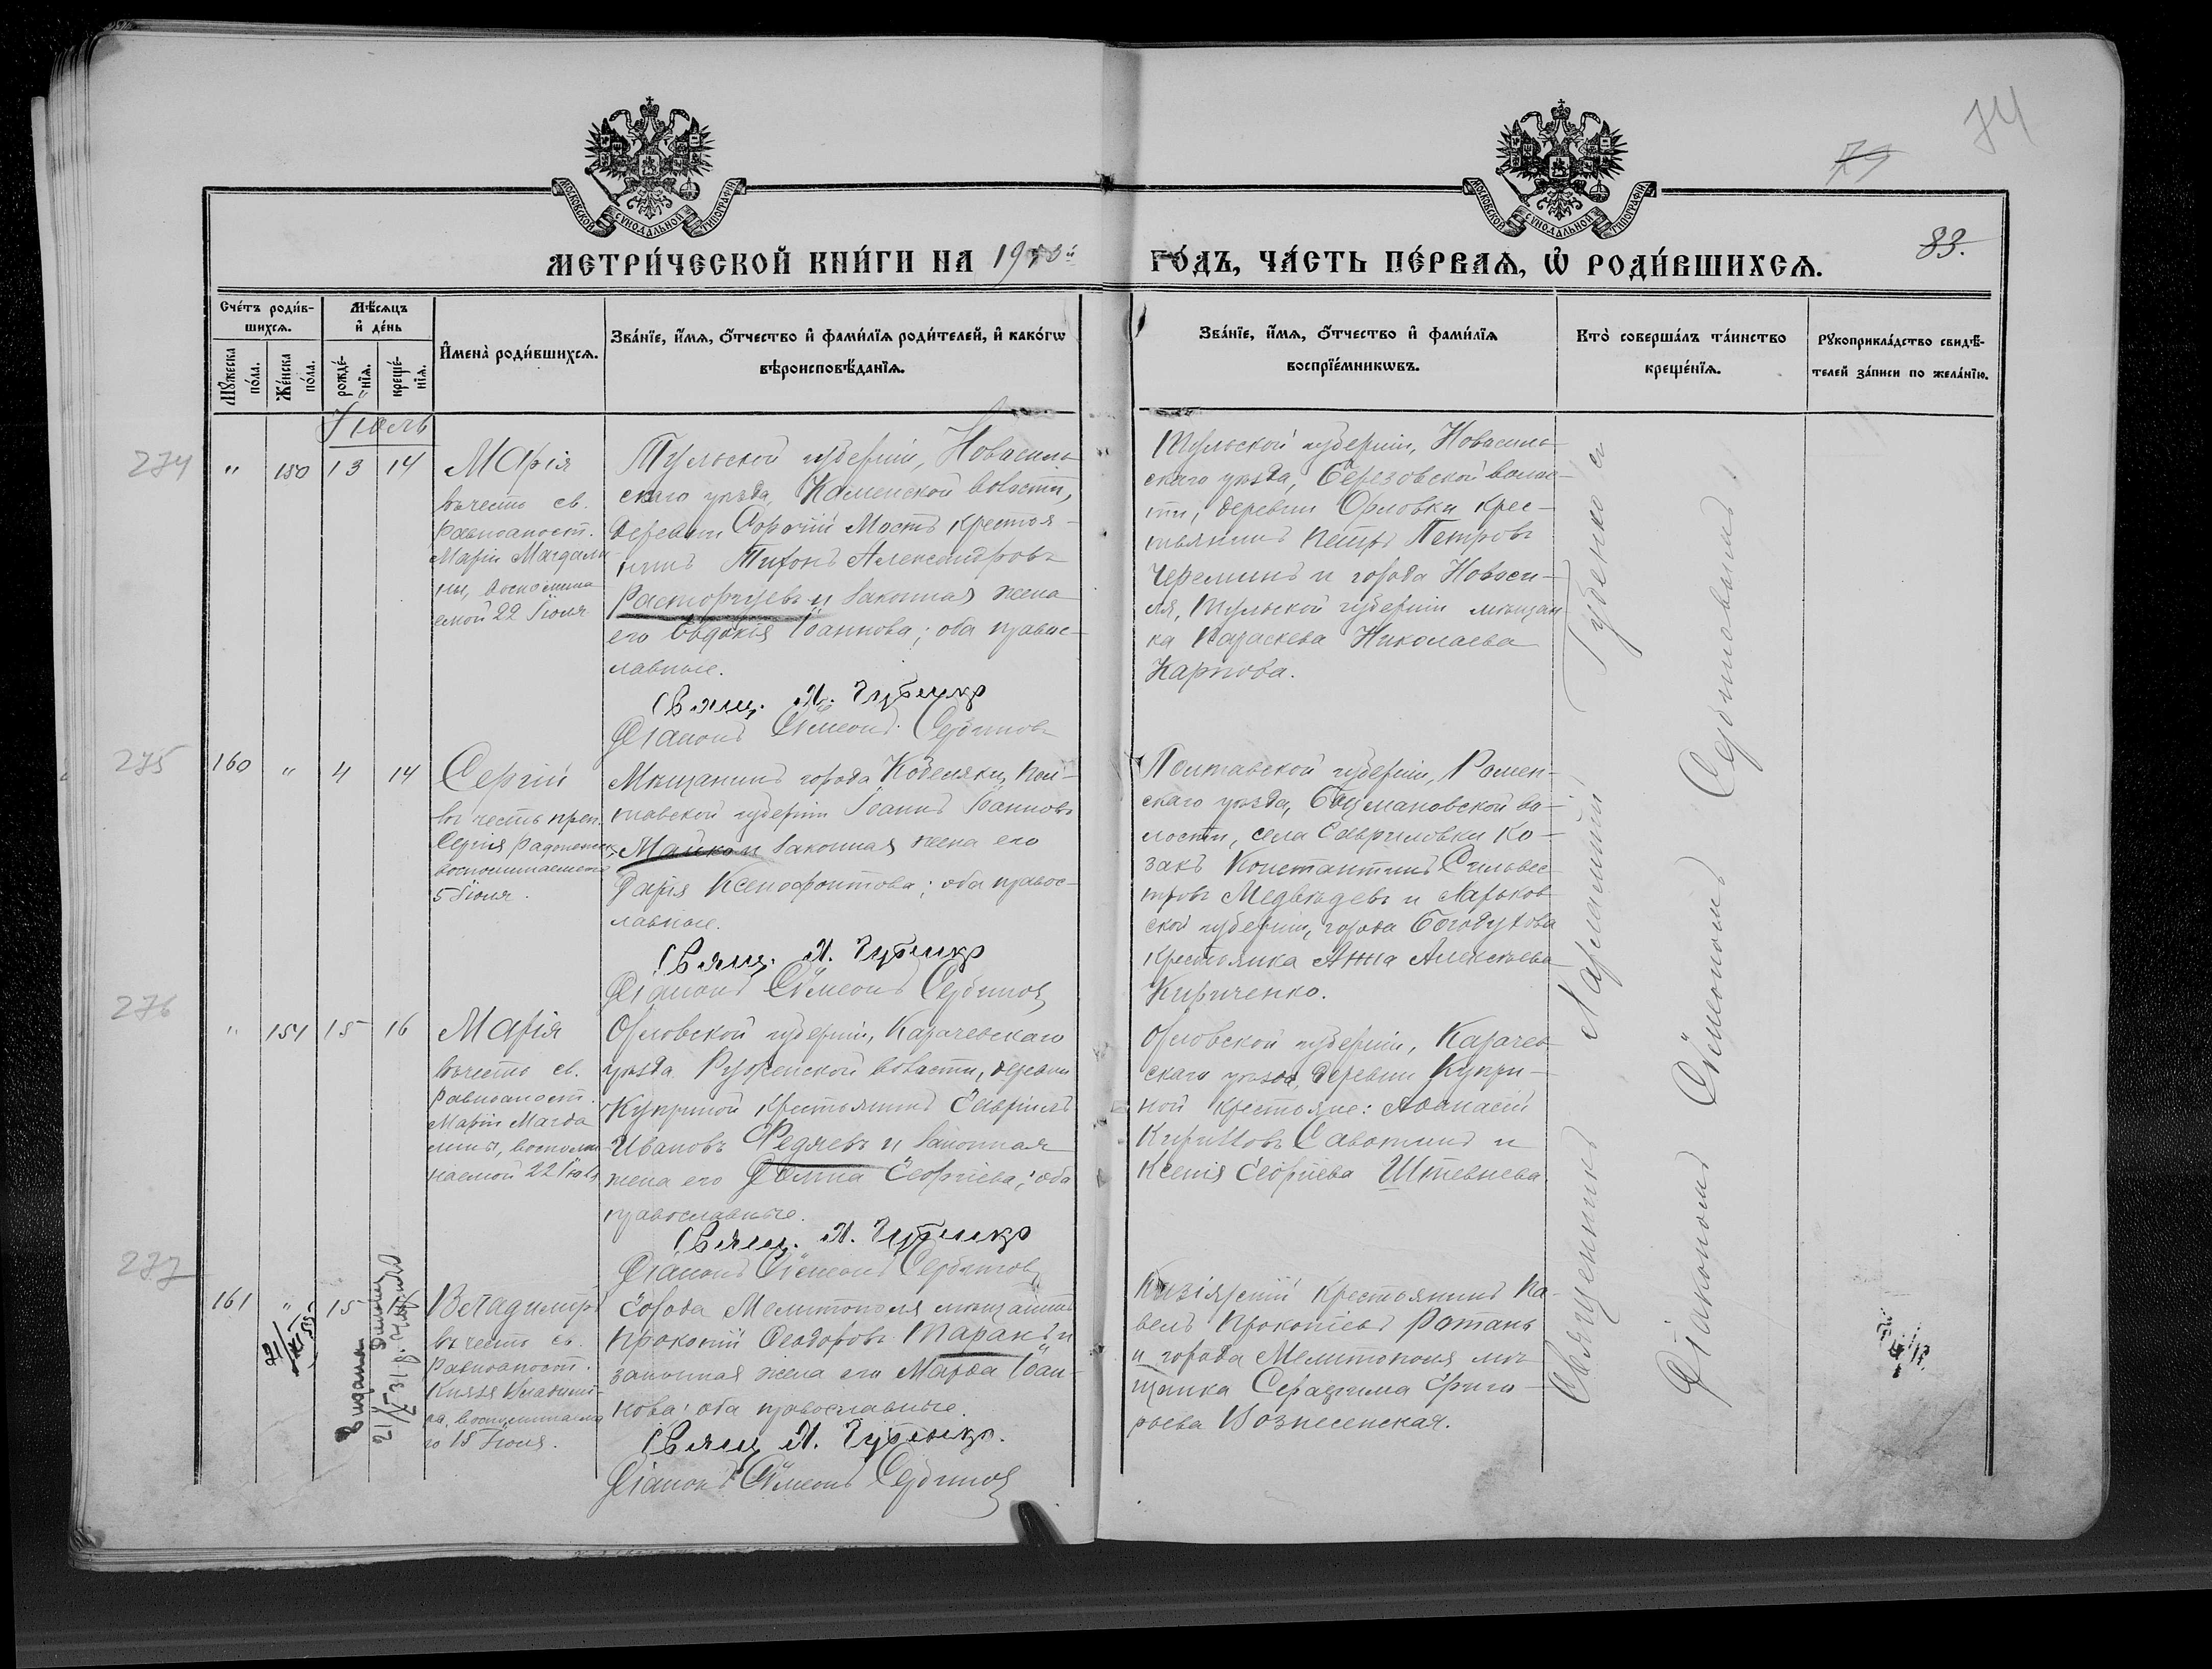 74
79
83.
МОСКОВСКОЙ СУНОДАЛЬНОЙ ТИПОГРАФІИ
МОСКОВСКОЙ СУНОДАЛЬНОЙ ТИПОГРАФІИ
МЕТРИ́ЧЕСКОЙ КНИ́ГИ НА 1910й ГО́ДЪ, ЧА́СТЬ ПЕ́РВАѦ, Ѡ РОДИ́ВШИХСѦ.
Сче́тъ роди́в-
шихсѧ.
Мѣ́сѧцъ
и҆ де́нь
Мꙋжеска по́ла.
Же́нска по́ла.
рожде́-
нїѧ.
креще́-
нїѧ.
И҆мена̀ роди́вшихсѧ.
Зва́нїе, и҆́мѧ, ѻ҆́тчество и҆ фами́лїѧ роди́телей, и҆ како́гѡ
вѣроисповѣ́данїѧ.
Зва́нїе, и҆́мѧ, ѻ҆́тчество и҆ фами́лїѧ
воспрїе́мникѡвъ.
Кто̀ соверша́лъ та́инство
креще́нїѧ.
Рꙋкоприкла́дство свидѣ́-
телей за́писи по жела́нїю.
Іюль
274
" 150 13 14
Марія
въ честь св.
равноапост.
Маріи Магдали
ны, воспомина
емой 22 Іюля
Тульской губерніи, Новосиль-
скаго уѣзда, Каменской волости,
деревни Сорочій Мостъ крестья-
нинъ Тихонъ Александровъ
Расторгуевъ и законная жена
его Евдокія Іоаннова; оба правос-
лавные.
Свящ. Л. Губенко
Діаконъ Сѵмеонъ Сербиновъ
Тульской губерніи, Новосиль-
скаго уѣзда, Березовской волос-
ти, деревни Орловки крес-
тьянинъ Петръ Петровъ
Черемпнъ и города Новоси-
ля, Тульской губерніи мѣщан-
ка Параскева Николаева
Карпова.
275
160 " 4 14
Сергій
въ честь преп.
Сергія Радонежск.
воспоминаемаго
5 Іюля.
Мѣщанинъ города Кобеляки, Пол-
тавской губерніи Іоаннъ Іоанновъ
Майко и законная жена его
Дарія Ксенофонтова; оба правос-
лавные.
Свящ. Л. Губенко
Діаконъ Сѵмеонъ Сербиновъ
Полтавской губерніи, Ромен-
скаго уѣзда, Бацмановской во-
лости, села Гавриловки ко-
закъ Константинъ Сильвес-
тровъ Медвѣдевъ и Харьков-
ской губерніи, города Богодухова
крестьянка Анна Алексѣева
Кириченко.
276
" 151 15 16
Марія
въ честь св.
равноапост.
Маріи Магда
лины, воспоми-
наемой 22 Іюля
Орловской губерніи, Карачевскаго
уѣзда Руженской волости, деревни
Куприной крестьянинъ Гавріилъ
Ивановъ Федяевъ и законная
жена его Домна Георгіева; оба
православные.
Свящ. Л. Губенко
Діаконъ Сѵмеонъ Сербиновъ
Орловской губерніи, Карачев-
скаго уѣзда, деревни Купри-
ной крестьяне: Аѳанасій
Кирилловъ Савоткинъ и
Ксенія Георгіева Штевнева.
277
161 " 15
Владиміръ
въ честь св.
Равноапост.
Князя Владими-
ра, воспоминаема
го 15 Іюля.
Выдана
Города Мелитополя мѣщанинъ
Прокопій Ѳеодоровъ Таранъ и
законная жена его Марѳа Іоан-
нова; оба православные.
Свящ. Л. Губенко.
Діаконъ Сѵмеонъ Сербиновъ
крестьянинъ Па-
велъ Прокопіевъ Ратань
и города Мелитополя мѣ-
щанка Серафима Григо-
рьева Вознесенская.
Священникъ Харлампій Губенко съ
Діакономъ Сѵмеономъ Сербиновымъ